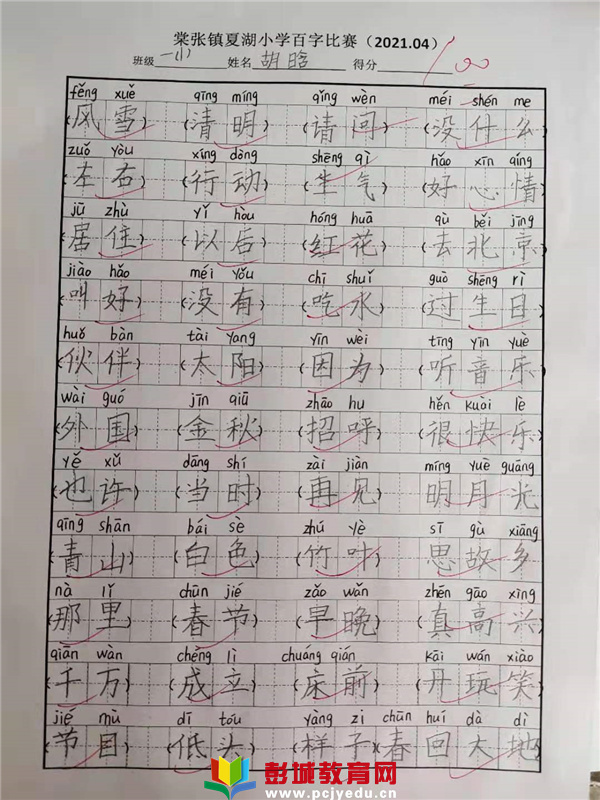 棠张镇夏湖小学百字比赛（2021.04）
班级 一小 姓名 胡晗 得分 100
fěng xuě qīng míng qǐng wèn méi shén me
(风雪) (清明) (请问) (没什么)
zuǒ yòu xíng dòng shēng qì hǎo xīn qíng
(左右) (行动) (生气) (好心情)
jū zhù yǐ hòu hóng huā qù běi jīng
(居住) (以后) (红花) (去北京)
jiào hǎo méi yǒu chī shuǐ guò shēng rì
(叫好) (没有) (吃水) (过生日)
huǒ bàn tài yang yīn wèi tīng yīn yuè
(伙伴) (太阳) (因为) (听音乐)
wài guó jīn qiū zhāo hu hěn kuài lè
(外国) (金秋) (招呼) (很快乐)
yě xǔ dāng shí zài jiàn míng yuè guāng
(也许) (当时) (再见) (明月光)
qīng shān bái sè zhú yè sī gù xiāng
(青山) (白色) (竹叶) (思故乡)
nà lǐ chūn jié zǎo wǎn zhēn gāo xìng
(那里) (春节) (早晚) (真高兴)
qiān wàn chèng lì chuáng qián kāi wán xiào
(千万) (成立) (床前) (开玩笑)
jié mù dī tóu yàng zi chūn huí dà dì
(节目) (低头) (样子)(春回大地)
彭城教育网
www.pcjyedu.cn